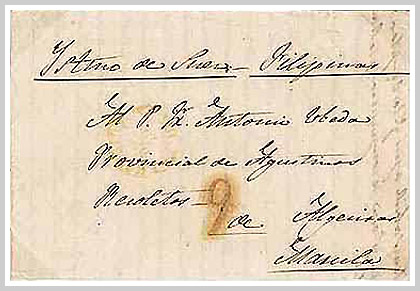 Ystmo de Suez - Filipinas
Al P. Fr. Antonio Ubeda
Provincial de Agustinos
Recoletos
de
Manila